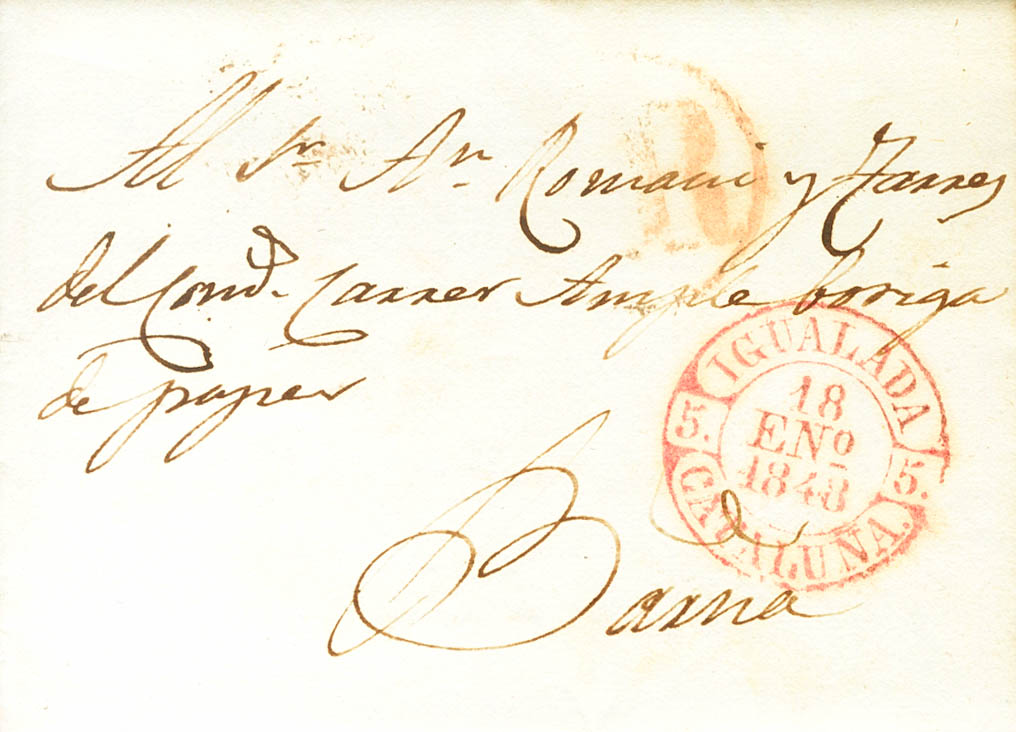 Al Sr. An. Romani y Tarres
del Come. Carrer Ample botiga
de paper
Barna
R
IGUALADA
18
ENº
1848
5. 5.
CATALUÑA.